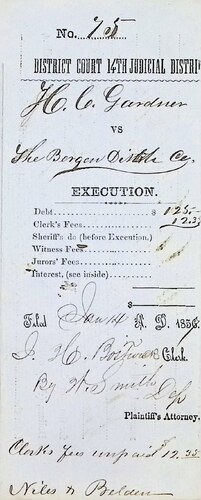 No. 75
DISTRICT COURT 14TH JUDICIAL DISTRI
H. C. Gardner
VS
The Bergen Co.
EXECUTION.
Debt $ 125.
Clerk's Fees 12.35
Sheriff's do (before Execution.)
Witness Fees
Jurors' Fees
Interest, (see inside)
$
Filed Jan 14 A. D. 185
J. H. Clerk.
By W. Smith Dep
Plaintiff's Attorney.
Clerks fees unpaid $12.35
Niles & Belden